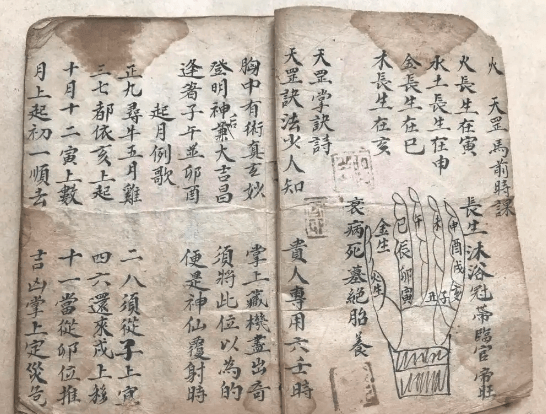 火 天罡馬前時課
火長生在寅 長生沐浴冠帶臨官帝旺
水土長生在申
金長生在巳
木長生在亥 衰病死墓絕胎養
申酉戌亥
未
午
巳辰卯寅
丑子
金生
天罡掌訣詩
天罡訣法少人知 貴人專用六壬時
胸中有術真玄妙 掌上藏機盡出奇
登明神后兼大吉昌 須將此位以為的
逢著子午並卯酉 便是神仙覆射時
起月例歌
正九尋牛五月雞 二八須從子上寅
三七都依亥上起 四六還來戌上移
十月十二寅上數 十一當從卯位推
月上起初一順去 吉凶掌上定災